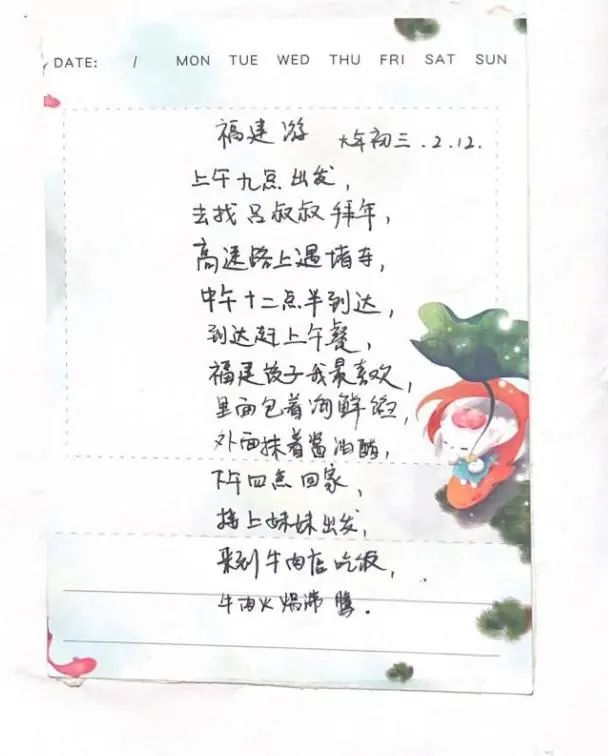 DATE: / MON TUE WED THU FRI SAT SUN
福建游 大年初三.2.12.
上午九点出发,
去找吕叔叔拜年,
高速路上遇堵车,
中午十二点半到达,
到达赶上午餐,
福建饺子我最喜欢,
里面包着海鲜馅,
外面抹着酱油醋,
下午四点回家,
接上妹妹出发,
来到牛肉店吃饭,
牛肉火锅沸腾.